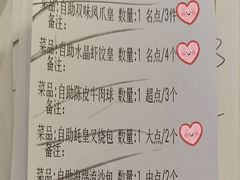 菜品:自助双味凤爪皇 数量:1 名点/3件
备注:
菜品:自助水晶虾饺皇 数量:1 名点/4个
备注:
菜品:自助陈皮牛肉球 数量:1 超点/3个
备注:
菜品:自助蚝皇叉烧包 数量:1 大点/2个
备注:
菜品:自助 流沙包 数量:1 中点/2个